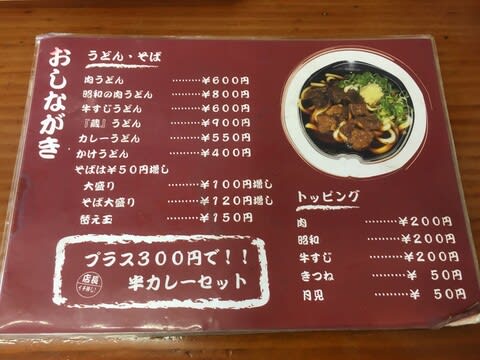 おしながき
うどん・そば
肉うどん ………¥600円
昭和の肉うどん ………¥800円
牛すじうどん ………¥600円
『蔵』うどん ………¥900円
カレーうどん ………¥550円
かけうどん ………¥400円
そばは¥50円増し
大盛り ………¥100円増し
そば大盛り ………¥120円増し
替え玉 ………¥150円
プラス300円で!!
半カレーセット
店長
トッピング
肉 ………¥200円
昭和 ………¥200円
牛すじ ………¥200円
きつね ………¥ 50円
月見 ………¥ 50円